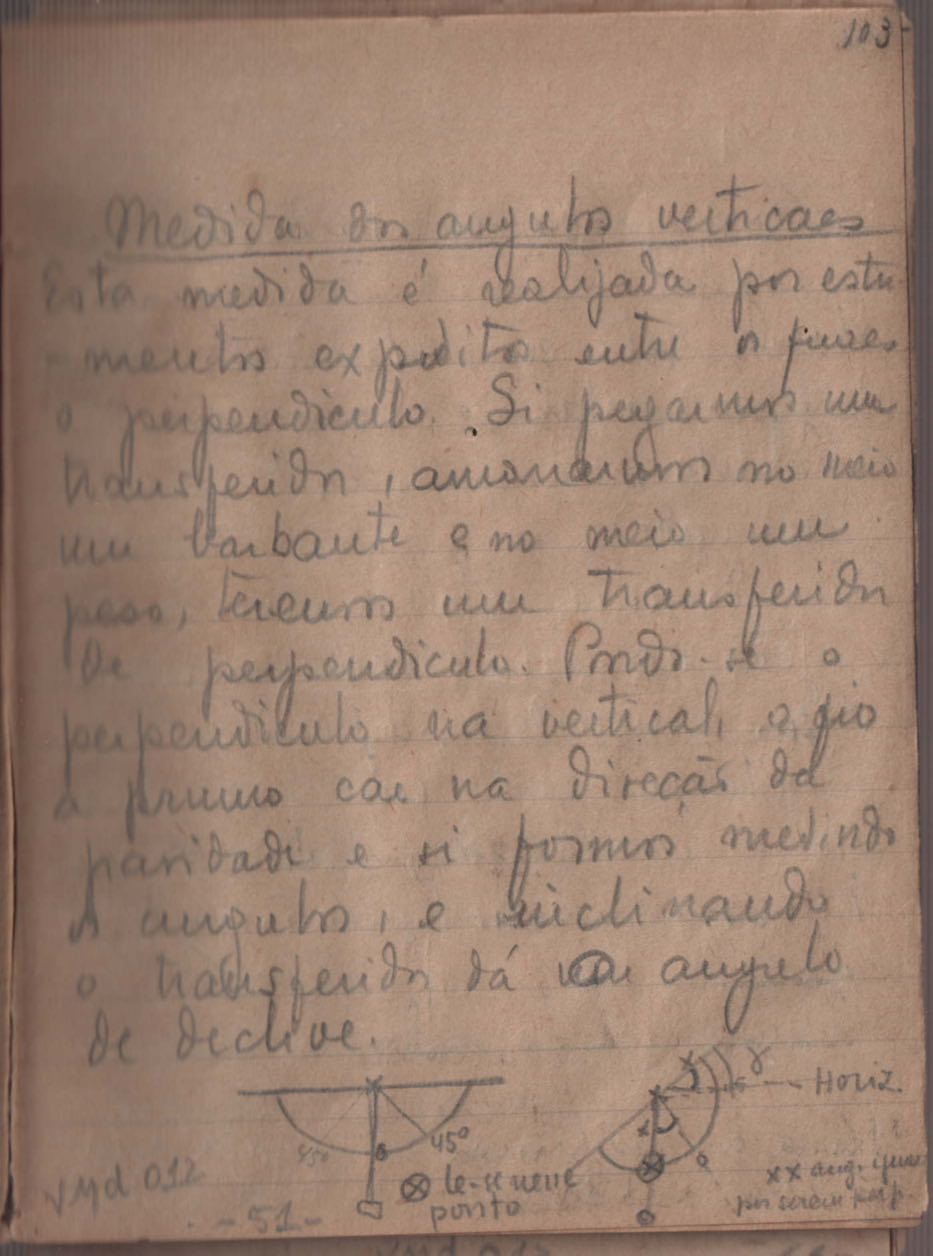 103-
Medida dos angulos verticaes
Esta medida é realijada por estru
-mentos expeditos entre os quaes
o perpendiculo. Si pegarmos um
transferidor, amarrarmos no meio
um barbante e no meio um
peso, teremos um transferidor
de perpendiculo. Pondo-se o
perpendiculo na vertical, o fio
a prumo cae na direcção da
paridade e si formos medindo
os angulos, e inclinando
o transferidor dá um angulo
de declive.
γ
x
Horiz.
45º 0 45º
x
0
⊗ le-se neste
ponto
x x ang. iguaes
por serem perp.
vyd 012
-51-